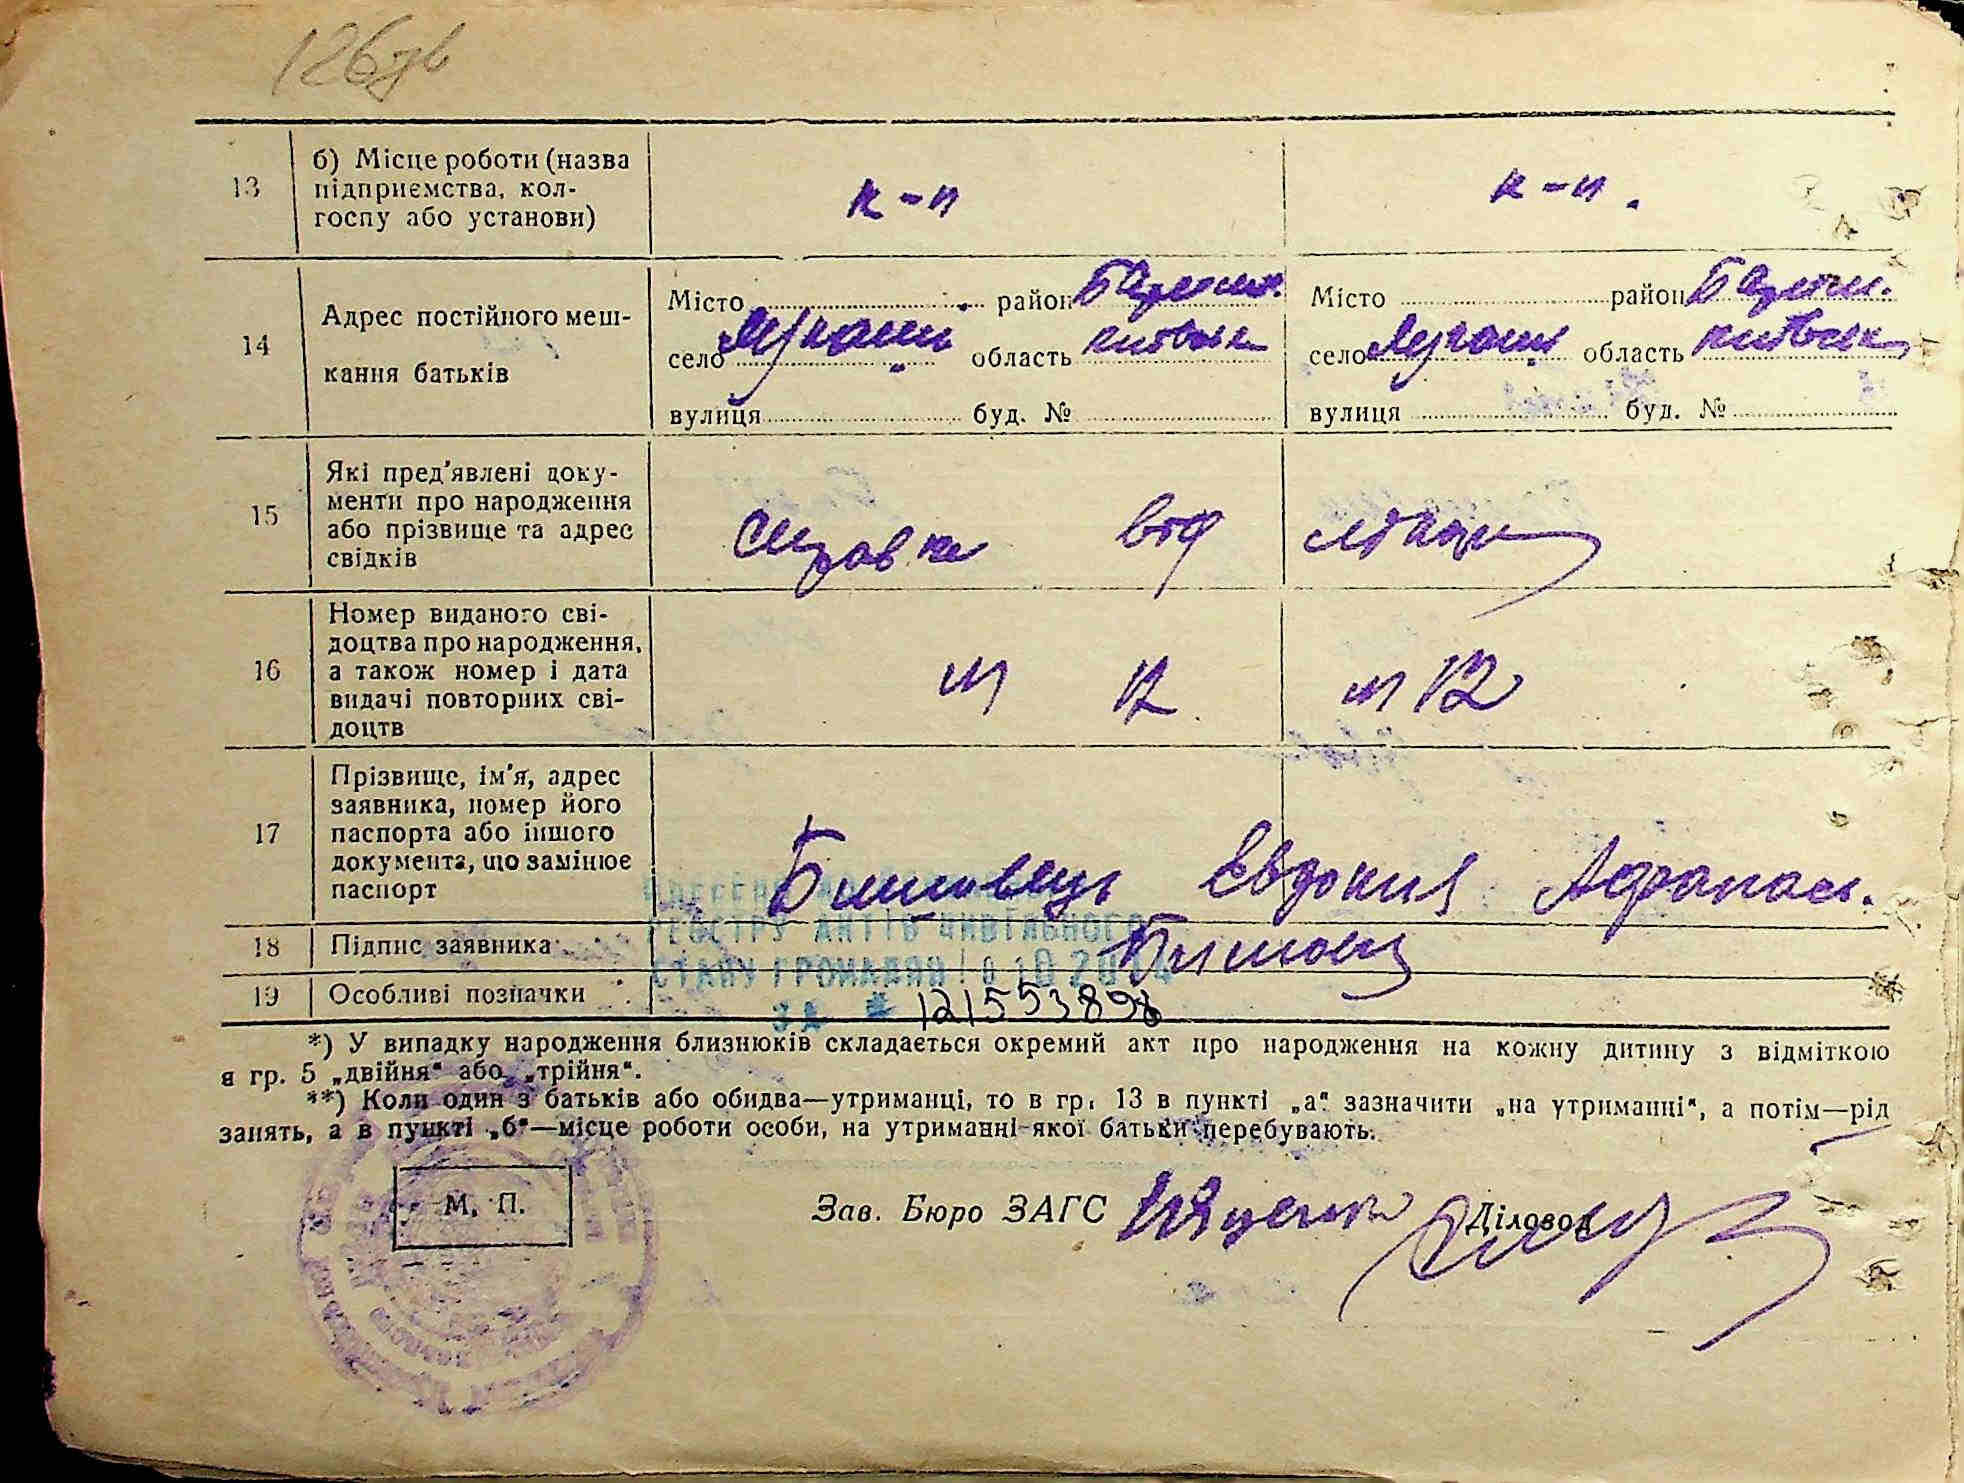 126зв
13 б) Місце роботи (назва підприємства, колгоспу або установи) к-п к-п.
14 Адрес постійного мешкання батьків
Місто район Місто район
село область київськ село область київськ
вулиця буд. № вулиця буд. №
15 Які пред'явлені документи про народження або прізвище та адрес свідків
справка від
16 Номер виданого свідоцтва про народження, а також номер і дата видачі повторних свідоцтв
12 12
17 Прізвище, ім'я, адрес заявника, номер його паспорта або іншого документа, що замінює паспорт
Євдокия Афанас.
18 Підпис заявника
19 Особливі позначки
РЕЄСТРУ АКТІВ ЦИВІЛЬНОГО
СТАНУ ГРОМАДЯН
за № 121553898
*) У випадку народження близнюків складається окремий акт про народження на кожну дитину з відміткою
в гр. 5 „двійня“ або „трійня“.
**) Коли один з батьків або обидва—утриманці, то в гр. 13 в пункті „а“ зазначити „на утриманні“, а потім—рід
занять, а в пункті „б“—місце роботи особи, на утриманні якої батьки перебувають.
М. П.
Зав. Бюро ЗАГС Діловод